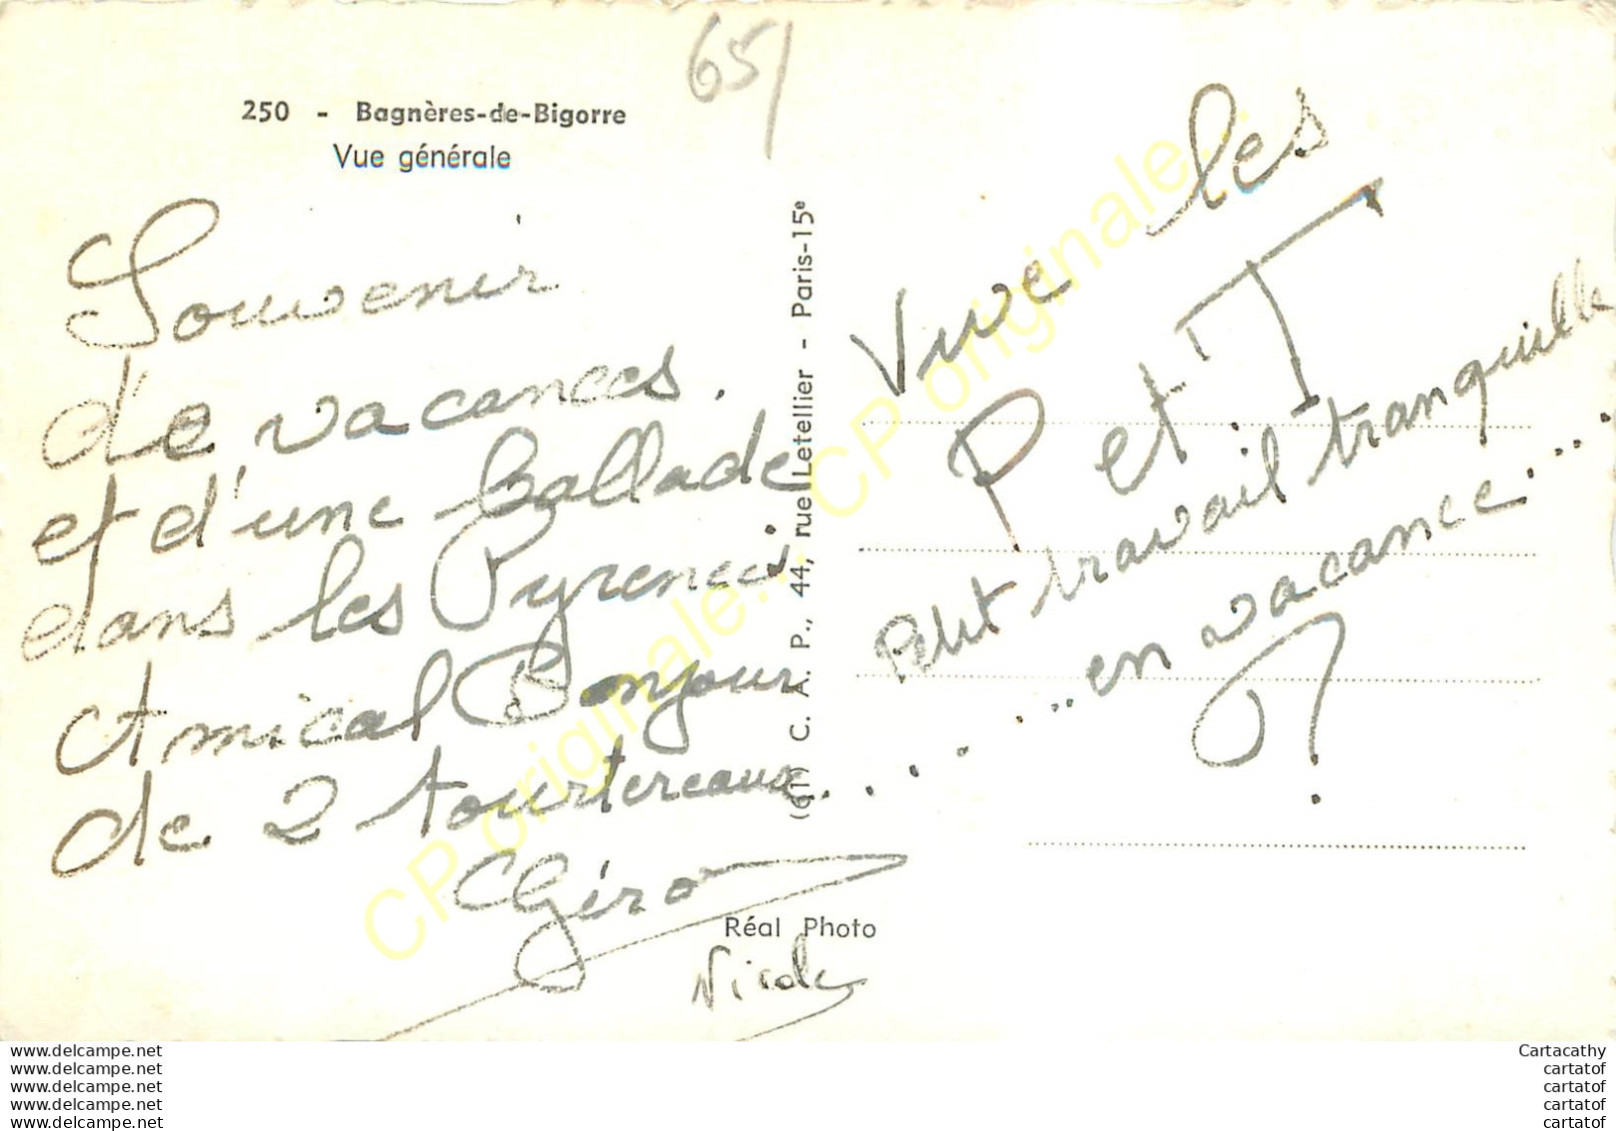 65
250 - Bagnères-de-Bigorre
Vue générale
Souvenir
de vacances.
et d'une ballade
dans les Pyrenees.
Amical Bonjour
de 2 tourtereaux.....
Géro
Nicole
Réal Photo
(61) C. A. P., 44, rue Letellier - Paris-15e
Vive les
P et T
Petit travail tranquille
... en vacance.....
?
CP originale.
CP originale.
CP originale.
www.delcampe.net
www.delcampe.net
www.delcampe.net
www.delcampe.net
www.delcampe.net
Cartacathy
cartatof
cartatof
cartatof
cartatof